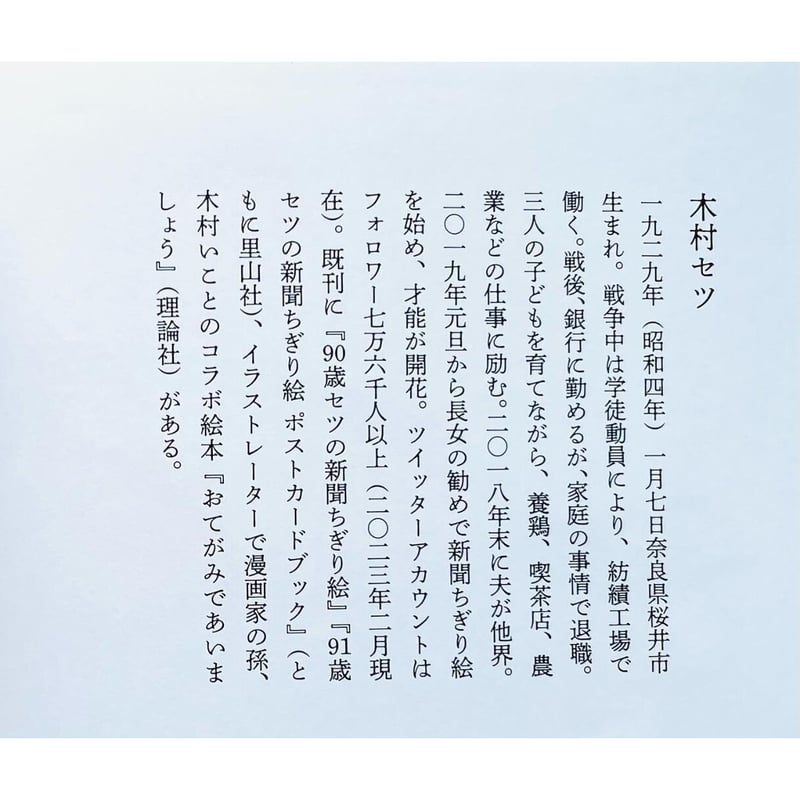 木村セツ
一九二九年（昭和四年）一月七日奈良県桜井市
生まれ。戦争中は学徒動員により、紡績工場で
働く。戦後、銀行に勤めるが、家庭の事情で退職。
三人の子どもを育てながら、養鶏、喫茶店、農
業などの仕事に励む。二〇一八年末に夫が他界。
二〇一九年元旦から長女の勧めで新聞ちぎり絵
を始め、才能が開花。ツイッターアカウントは
フォロワー七万六千人以上（二〇二三年二月現
在）。既刊に『90歳セツの新聞ちぎり絵』『91歳
セツの新聞ちぎり絵 ポストカードブック』（と
もに里山社）、イラストレーターで漫画家の孫、
木村いことのコラボ絵本『おてがみであいま
しょう』（理論社）がある。